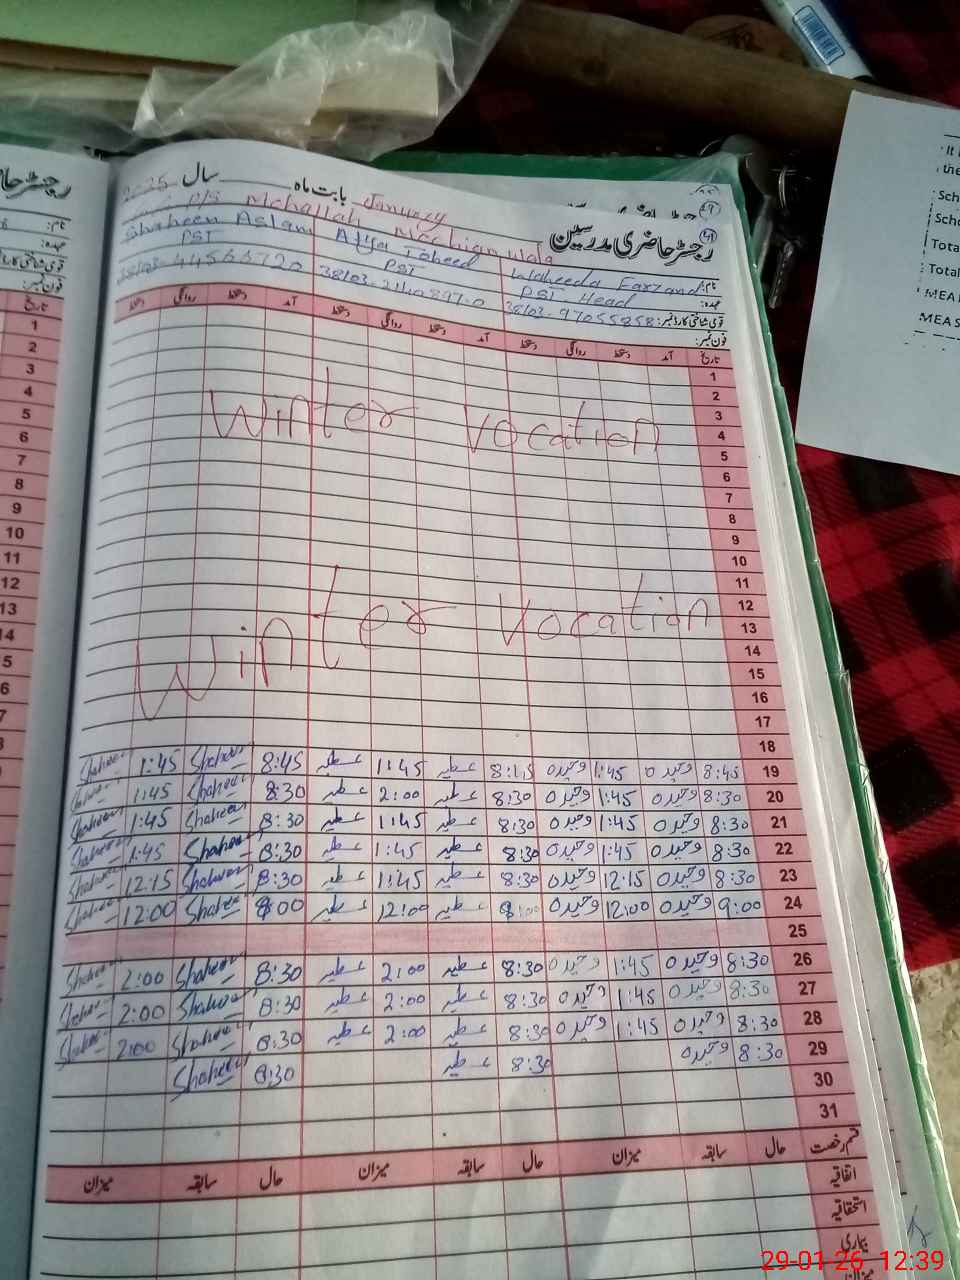 رجسٹر حاضری مدرسین
بابت ماہ January سال 2025
P/S Mohallah Mochian wala
نام: Waheeda Farzand Atya Toheed Shaheen Aslam
عہدہ: PST Head PST PST
قومی شناختی کارڈ نمبر:
فون نمبر:
تاریخ آمد دستخط روانگی دستخط آمد دستخط روانگی دستخط آمد دستخط روانگی دستخط
1
2
3
Winter Vocation
4
5
6
7
8
9
10
11
12
Winter Vocation
13
14
15
16
17
18
19 8:45 وحیدہ 1:45 وحیدہ 8:15 عطیہ 1:45 عطیہ 8:45 Shaheen 1:45 Shaheen
20 8:30 وحیدہ 1:45 وحیدہ 8:30 عطیہ 2:00 عطیہ 8:30 Shaheen 1:45 Shaheen
21 8:30 وحیدہ 1:45 وحیدہ 8:30 عطیہ 1:45 عطیہ 8:30 Shaheen 1:45 Shaheen
22 8:30 وحیدہ 1:45 وحیدہ 8:30 عطیہ 1:45 عطیہ 8:30 Shaheen 1:45 Shaheen
23 8:30 وحیدہ 12:15 وحیدہ 8:30 عطیہ 1:45 عطیہ 8:30 Shaheen 12:15 Shaheen
24 9:00 وحیدہ 12:00 وحیدہ عطیہ 12:00 عطیہ Shaheen 12:00 Shaheen
25
26 8:30 وحیدہ 1:45 وحیدہ 8:30 عطیہ 2:00 عطیہ 8:30 Shaheen 2:00 Shaheen
27 8:30 وحیدہ 1:45 وحیدہ 8:30 عطیہ 2:00 عطیہ 8:30 Shaheen 2:00 Shaheen
28 8:30 وحیدہ 1:45 وحیدہ 8:30 عطیہ 2:00 عطیہ 8:30 Shaheen 2:00 Shaheen
29 8:30 وحیدہ 8:30 عطیہ 8:30 Shaheen
30
31
قسم رخصت حال سابقہ میزان حال سابقہ میزان حال سابقہ میزان
اتفاقیہ
استحقاقیہ
بیماری
میزان
29-01-26 12:39